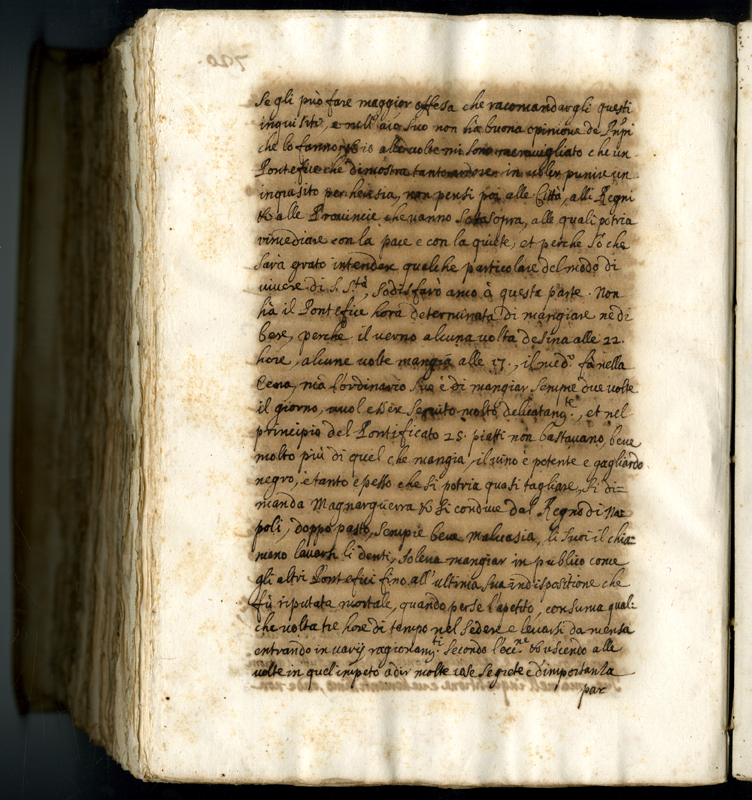 Se gli può fare maggior offesa che racomandargli questi
inquisiti, e nell'aīo suo non hà buona opinione de Pnpi
che lo fanno, & io alle volte mi sono meravigliato che un
Pontefice che dimostra tanto ardore in voler punire un
inquisito per heresia, non pensi poi alle Città, alli Regni
& alle Provincie che vanno sotto sopra, alle quali potria
rimediare con la pace e con la quiete, et perche sò che
sarà grato intendere qualche particolare del modo di
vivere di S. S.tà, sodisfarò anco à questa parte. Non
hà il Pontefice hora determinata di mangiare ne di
bere, perche il verno alcuna volta desina alle 22.
hore, alcune volte mangia alle 17., il med.o fà nella
Cena, mà l'ordinario suo è di mangiar sempre due volte
il giorno, vuol essere servito molto delicatam.te, et nel
principio del Pontificato 25. piatti non bastavano, beve
molto più di quel che mangia, il vino è potente e gagliardo
negro, e tanto spesso che si potria quasi tagliare, si di=
manda Magnarguerra & si conduce dal Regno di Na=
poli, doppo pasto, sempre beve malvasia, li suoi il chia=
mano lavarsi li denti, soleva mangiar in publico come
gli altri Pontefici fino all'ultima sua indispositione che
fù riputata mortale, quando perse l'apetito, consuma qual=
che volta tre hore di tempo nel sedere e levarsi da mensa
entrando in varij ragionam.ti secondo l'occ.ne & uscendo alle
volte in quel impeto à dir molte cose segrete e d'importanza
par